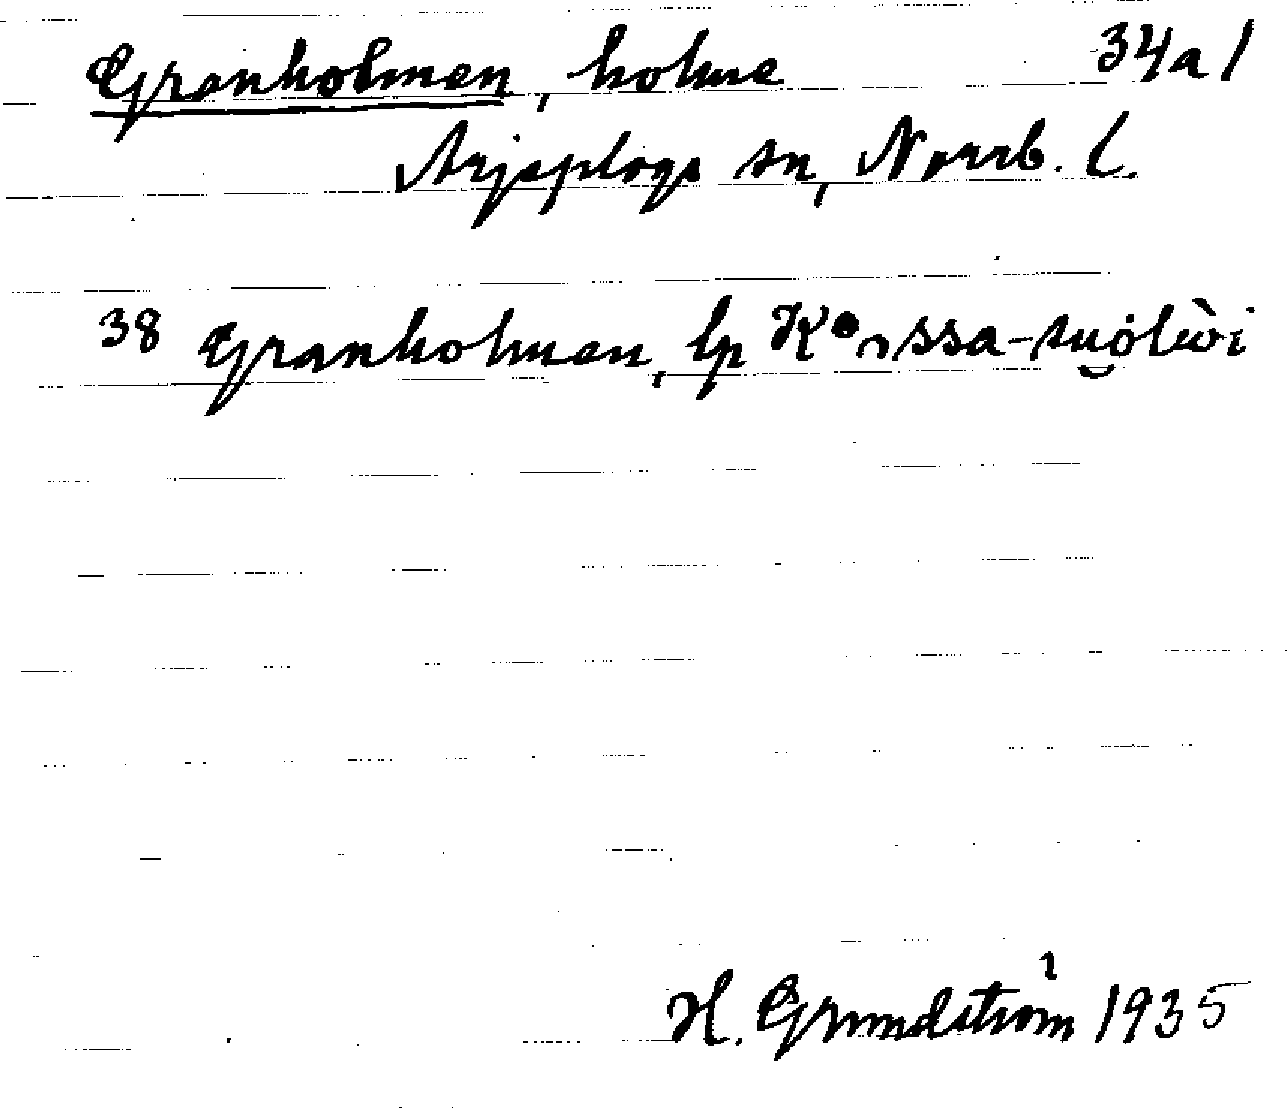 Granholmen, holme 34a1
Arjeplogs sn, Norrb. l.
38 Granholmen, lp
H. Grundström 1935